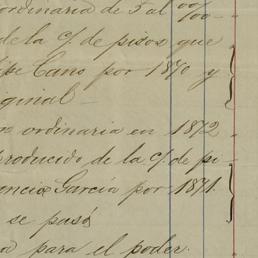 ordinaria de 5 al %
de la c/. de pisos que
Cano por 1870 y
original
ordinaria en 1872
producido de la c/. de pi-
encia García por 1871.
se pasó
para el poder.